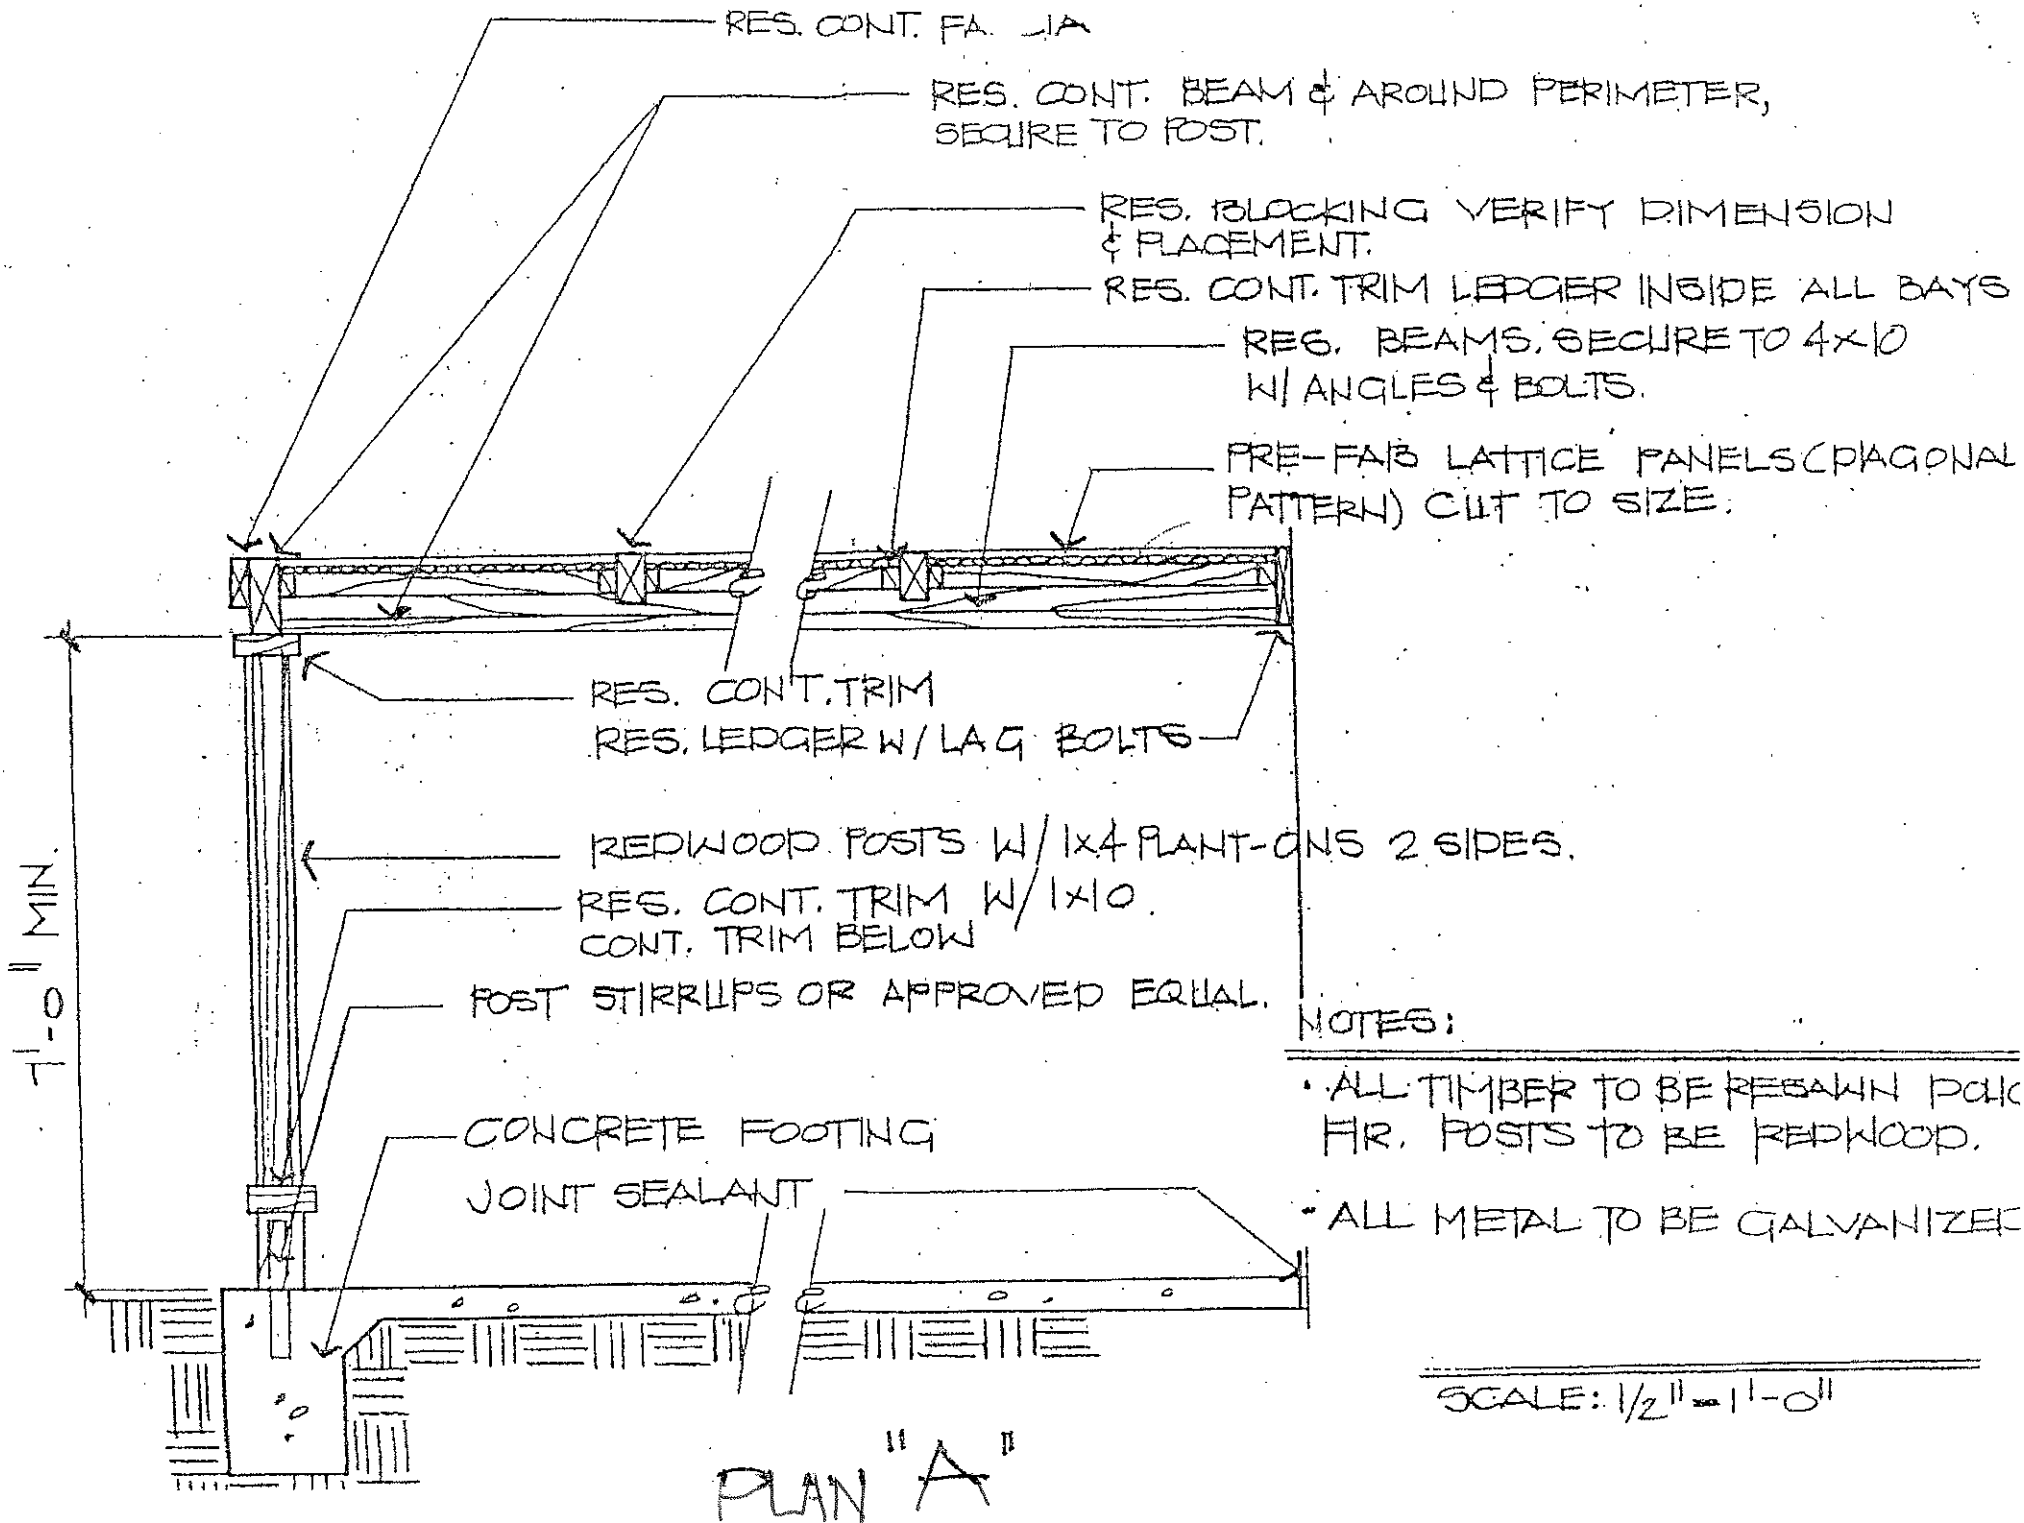 RES. CONT. FA  IA
RES. CONT. BEAM & AROUND PERIMETER,
SECURE TO POST.
RES. BLOCKING VERIFY DIMENSION
& PLACEMENT.
RES. CONT. TRIM LEDGER INSIDE ALL BAYS
RES. BEAMS. SECURE TO 4x10
W/ ANGLES & BOLTS.
PRE-FAB LATTICE PANELS (DIAGONAL
PATTERN) CUT TO SIZE.
RES. CONT. TRIM
RES. LEDGER W/ LAG BOLTS
REDWOOD POSTS W/ 1x4 PLANT-ONS 2 SIDES.
RES. CONT. TRIM W/ 1x10.
CONT. TRIM BELOW
POST STIRRUPS OR APPROVED EQUAL.
7'-0" MIN.
CONCRETE FOOTING
JOINT SEALANT
NOTES:
• ALL TIMBER TO BE RESAWN DOUG
FIR. POSTS TO BE REDWOOD.
• ALL METAL TO BE GALVANIZED
SCALE: 1/2" = 1'-0"
PLAN "A"